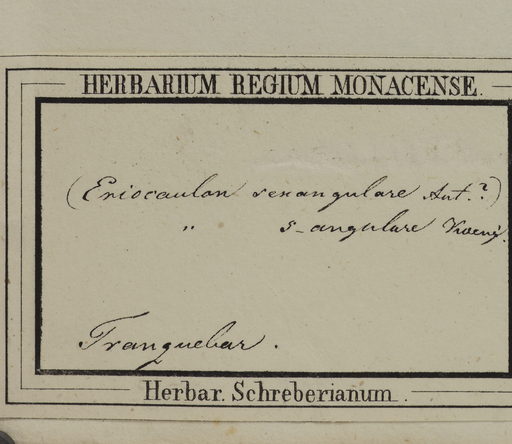 HERBARIUM REGIUM MONACENSE.
(Eriocaulon sexangulare Aut.?)
" 5-angulare Koenig.
Tranquebar.
Herbar. Schreberianum.